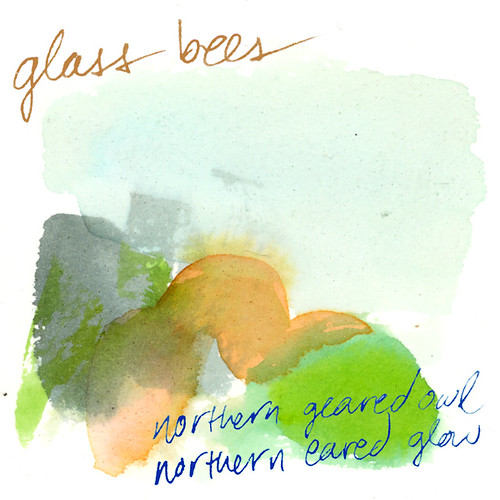 glass bees
northern geared owl
northern eared glow